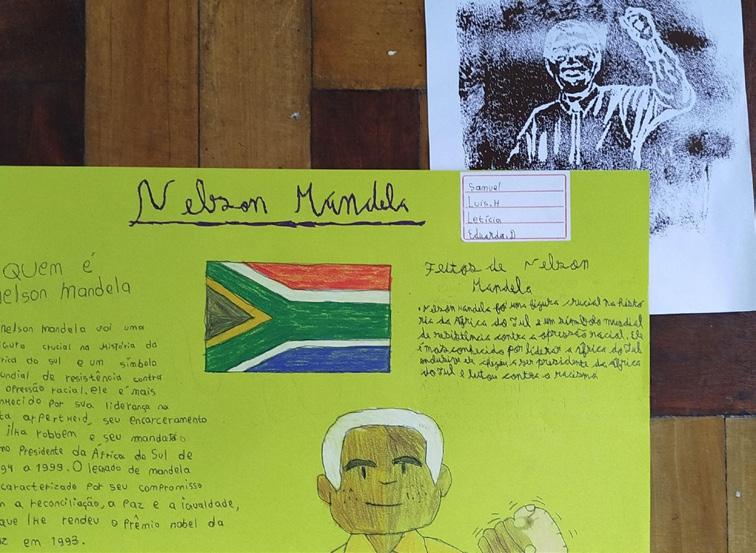 Nelson Mandela
Samuel
Luís.H
Letícia
Eduarda.D
QUEM é
nelson mandela
nelson mandela voi uma
crucial na História da
do sul e um símbolo
de resistência contra
opresão racial. ele é mais
por sua liderança na
arpertheid, seu encarceramento
ilha robben e seu mandato
Presidente da África do Sul de
a 1999. O legado de mandela
caracterizado por seu compromisso
a reconciliação, a Paz e a igualdade,
que lhe rendeu o Prêmio nobel da
em 1993.
Feitos de Nelson
Mandela
• Nelson Mandela foi uma figura crucial na histó
ria da África do Sul e um símbolo mundial
de resistência contra a opressão racial. Ele
é mais conhecido por liderar a África do Sul
chegou a ser presidente da África
do Sul e lutou contra o racismo